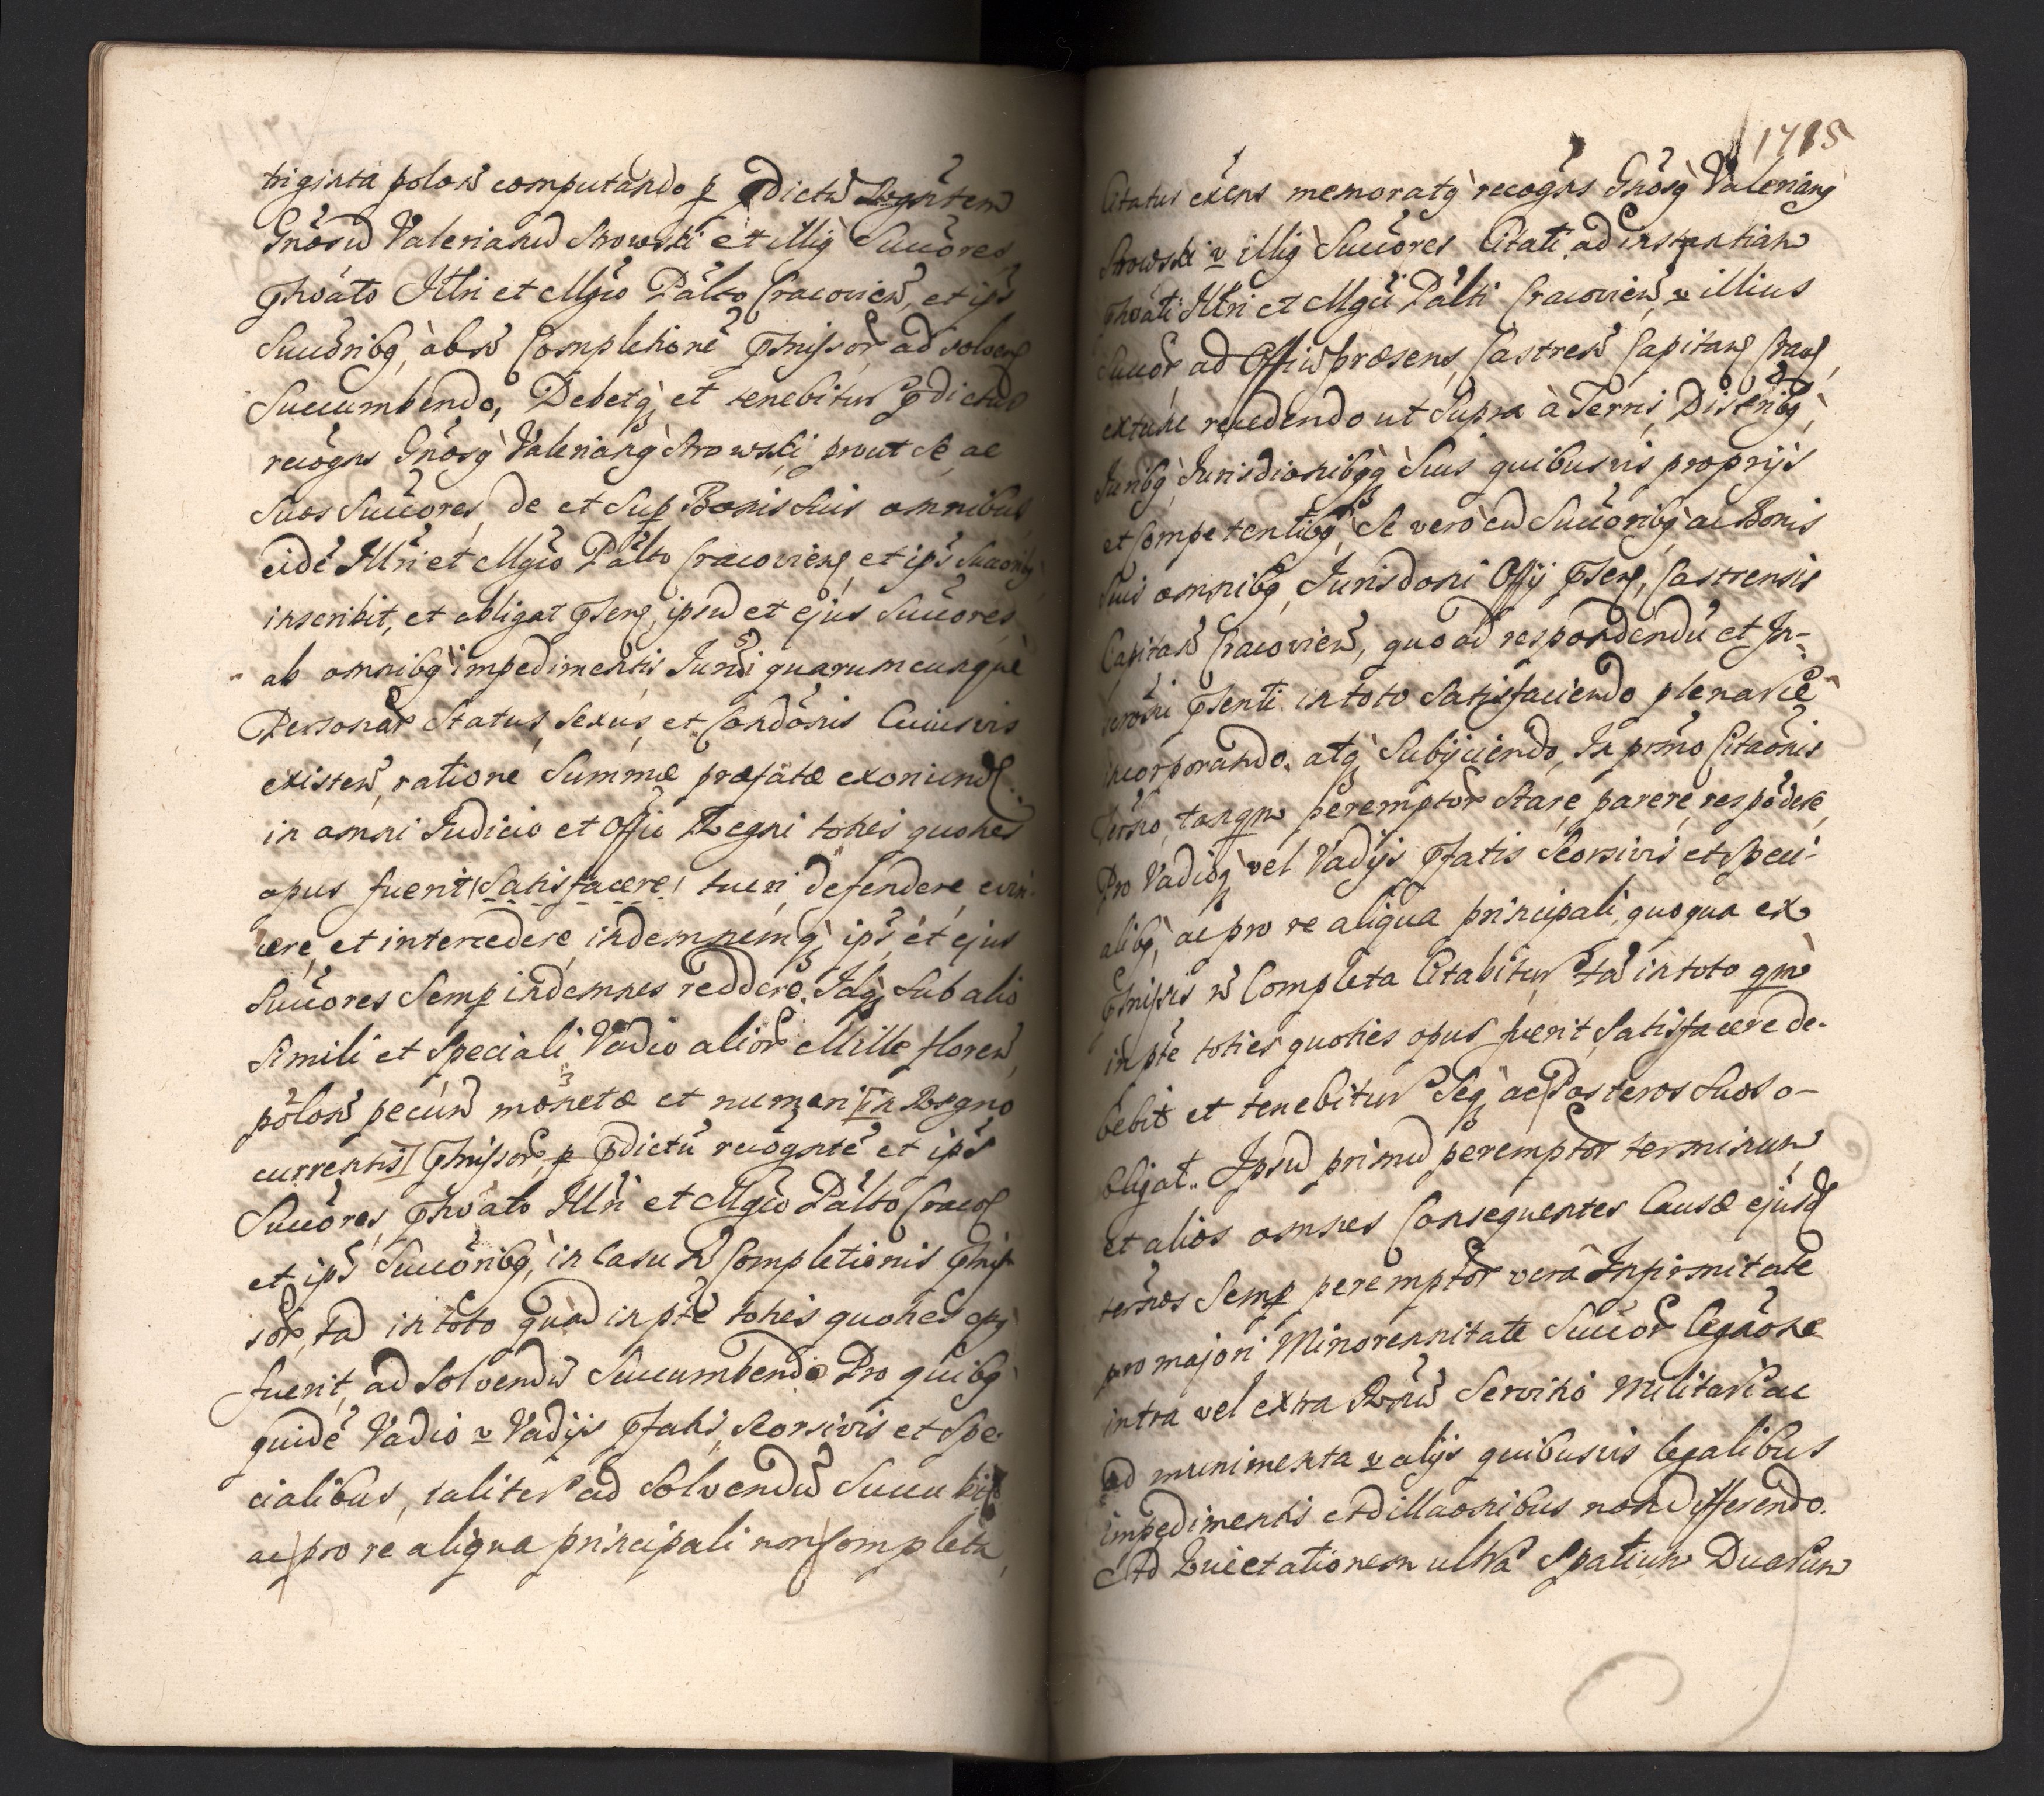 triginta polon̄ computando p pdictū Rgntem
Gnosū Valerianū Strowski et illig Succores
phoato Illri et Mgco Palto Cracovien̄, et ips
Succoribg, ob n̄ Completione pmissor ad solven
Succumbendo, Debetq et tenebitur pdictus
recogns Gnosg Valeriang Strowski, prout se ac
Suos Succores, de et Sup Bonis Suis omnibus
eidē Illri et Mgco Palto Cracovien, et ips Succoribg
inscribit, et obligat psens, ipsū et ejus Succores
ab omnibg impedimentis Jurdi quarumcunque
Personar Status, Sexus, et Condonis Cuiusvis
existen̄, ratione Summæ præfatæ exoriund
in omni Judicio et Offio Regni toties quoties
opus fuerit (Satisfacere) tueri, defendere, evin-
cere, et intercedere, indemnemq, ips et ejus
Succores Semp indemnes reddere. Idq Sub alio
Simili et Speciali Vadio alior Mille floren̄
polon̄ pecun̄ monetæ et numeri in Regno
currentis pmissor, p pdictū recogntē et ips
Succores, phoato Illri et Mgco Palto Cracov
et ips Succoribg, in Casu n̄ Completionis pmis-
sor, ta in toto quā in pte toties quoties opg
fuerit, ad Solvendū Succumbendo Pro quibg
quidē Vadio v Vadijs pfatis, Seorsivis et Spe-
cialibus, taliter ad Solvendū Succu
ac pro re aliqua principali non Completa
1715
Citatus exens memoratg recogns Gnosg Valeriang
Strowski v illig Succores Citati, ad instantiam
phoati Illri et Mgci Palti Cracovien̄, v illius
Succor ad Offiū præsens, Castren̄ Capitan Crac,
extunc recedendo ut Supra à Terris, Distribg,
Juribg, Jurisdionibgq Suis quibusvis proprijs
et Competentibg, Se vero cū Succoribg, ac Bonis
Suis omnibg, Jurisdoni Offij psens, Castrensis
Capitan̄ Cracovien̄, quo ad respondendū et In-
scroni psenti in toto Satisfaciendo plenarie
incorporando. atq Subijciendo, In primo Citaonis
termo, tanqm peremptor Stare, parere, respōdere,
Pro Vadioq vel Vadijs pfatis Seorsivis et Speci-
alibg, ac pro re aliqua principali, quoqua ex
pmissis n̄ Completa Citabitur tā in toto qm
in pte toties quoties opus fuerit, Satisfacere de-
bebit et tenebitur Seq, ac Posteros Suos o-
bligat. Ipsū primū peremptor terminum
et alios omnes Consequentes Causæ ejusd
termos Semp peremptor verâ Infirmitate
pro majori Minorennitate Succor legaone
intra vel extra Rnū Servitio Militari ac
ad munimenta v alijs quibusvis legalibus
impedimentis et dillaonibus non differendo.
Ad Evictationem ultrâ Spatium Duarum